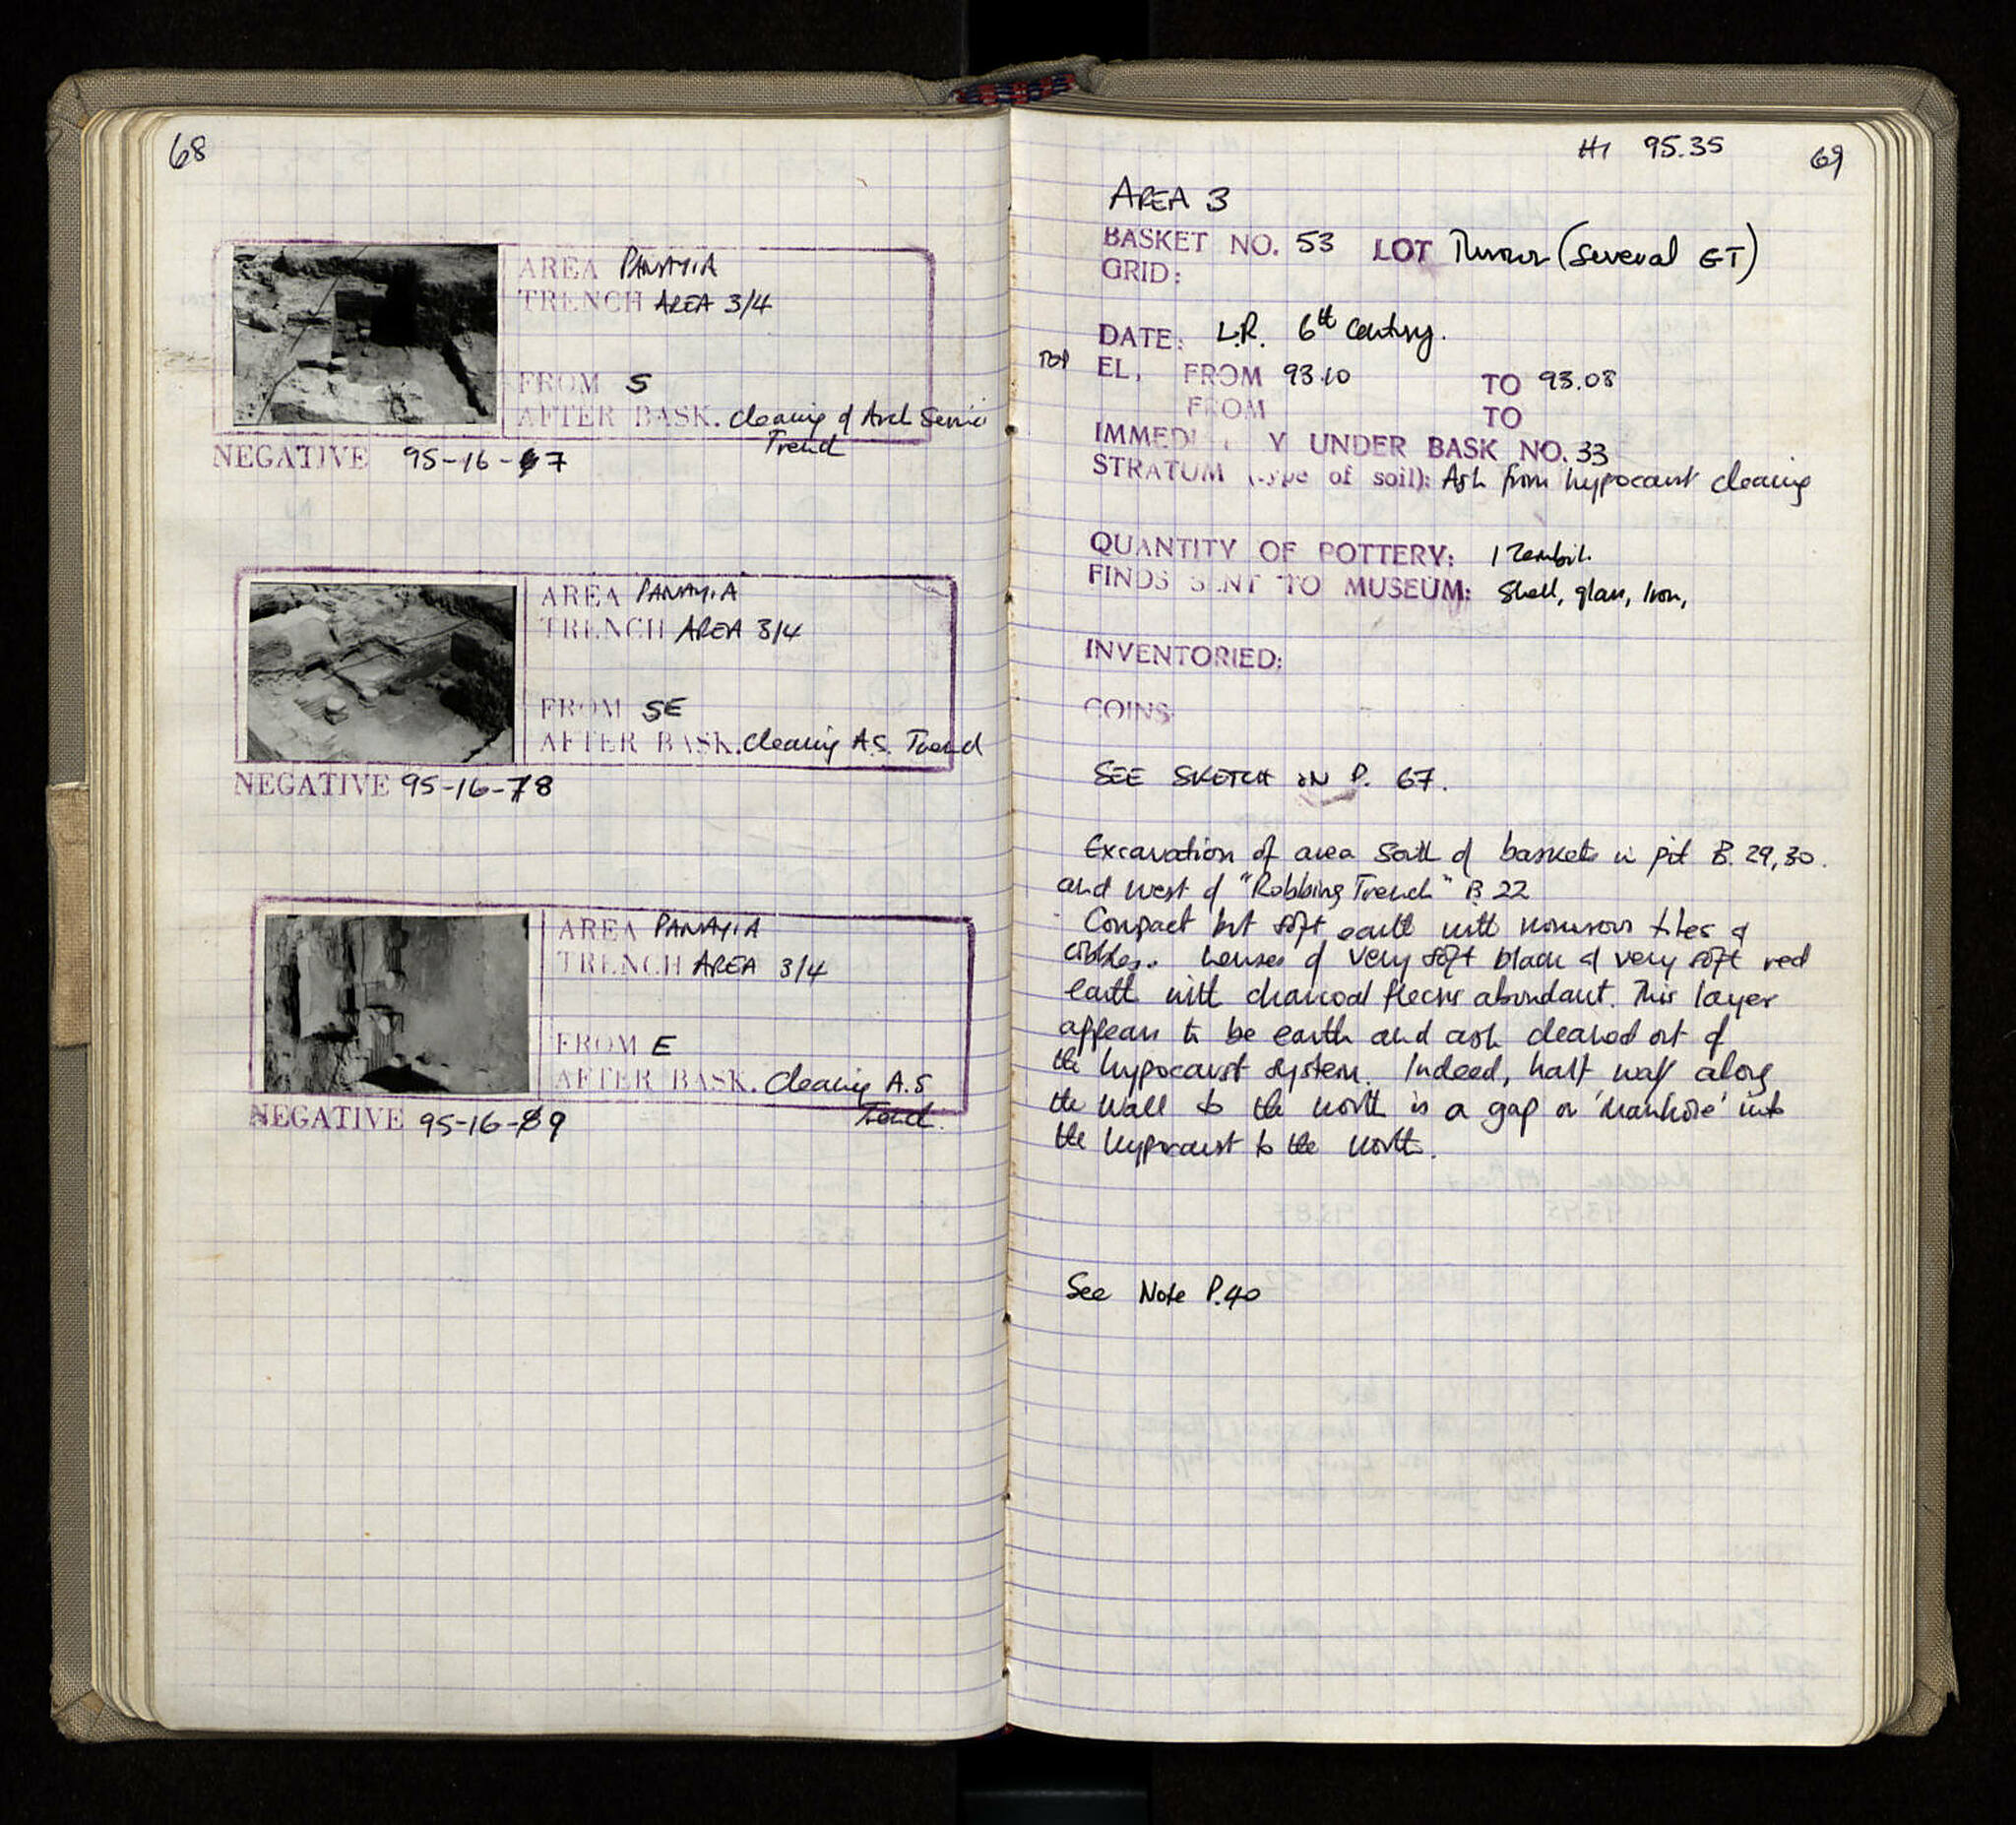 68
AREA PANAYIA
TRENCH AREA 3/4
FROM S
AFTER BASK. Cleaning of Arch Service
Trench
NEGATIVE 95-16-7
AREA PANAYIA
TRENCH AREA 3/4
FROM SE
AFTER BASK. Cleaning A.S. Trench
NEGATIVE 95-16-8
AREA PANAYIA
TRENCH AREA 3/4
FROM E
AFTER BASK. Cleaning A.S
Trench.
NEGATIVE 95-16-9
HI 95.35
69
AREA 3
BASKET NO. 53 LOT Thrown (several GT)
GRID:
DATE: L.R. 6th Century.
TOP EL. FROM 93.10 TO 93.08
FROM TO
IMMEDI Y UNDER BASK NO. 33
STRATUM (type of soil): Ash from hypocaust cleaning
QUANTITY OF POTTERY: 1 Zembil.
FINDS SENT TO MUSEUM: Shell, glass, Iron,
INVENTORIED:
COINS:
SEE SKETCH ON P. 67.
Excavation of area South of baskets in pit B. 29, 30.
and west of "Robbing Trench" B 22
Compact but soft earth with numerous tiles &
cobbles. Lenses of very soft black & very soft red
earth with charcoal flecks abundant. This layer
appears to be earth and ash cleaned out of
the hypocaust system. Indeed, half way along
the wall to the north is a gap or 'manhole' into
the hypocaust to the north.
See Note P.40